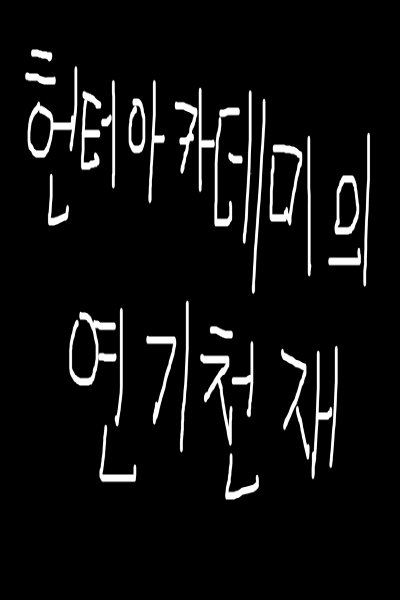 헌터아카데미의
연기천재